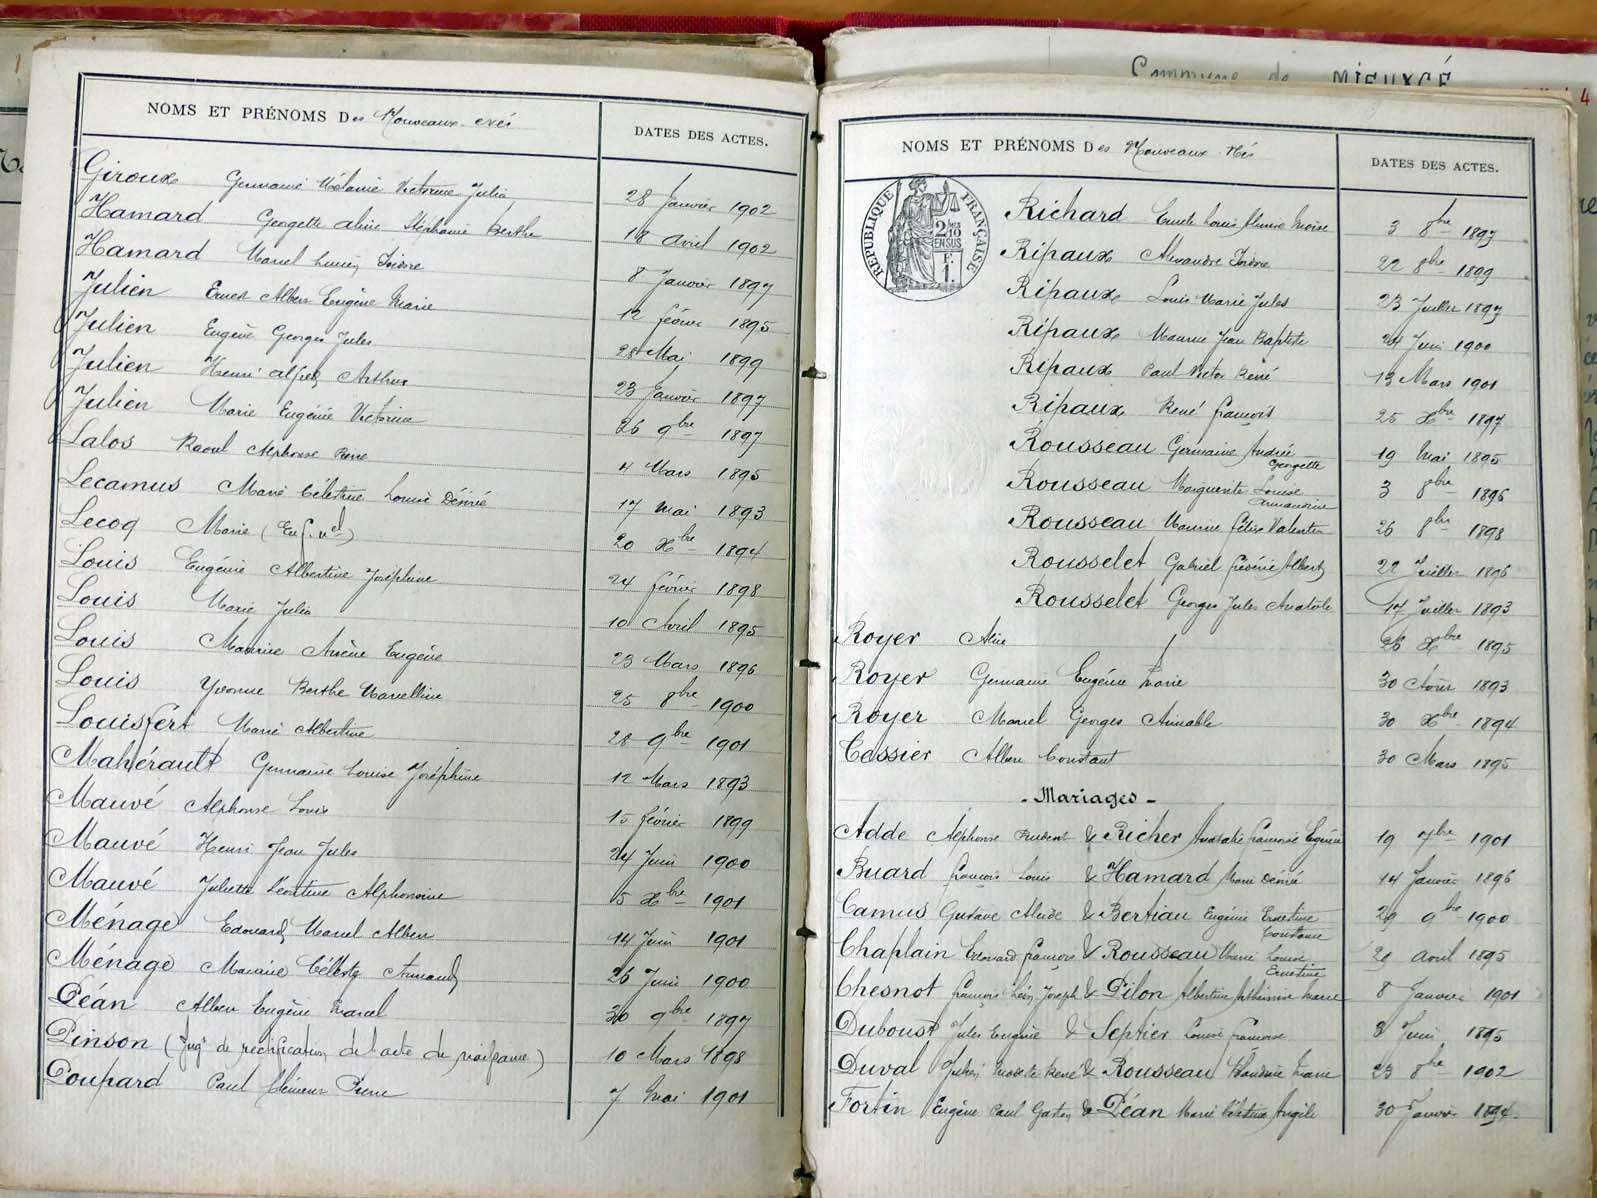 Commune de MIEUXCÉ
NOMS ET PRÉNOMS Des Nouveaux-nés
DATES DES ACTES.
Giroux Germaine Mélanie Victorine Julia 28 Janvier 1902
Hamard Georgette Aline Stéphanie Berthe 18 Avril 1902
Hamard Marcel Lucien Isidore 8 Janvier 1897
Julien Ernest Albert Eugène Marie 12 février 1895
Julien Eugène Georges Jules 28 Mai 1899
Julien Henri Alfred Arthur 23 Janvier 1897
Julien Marie Eugénie Victorine 26 9bre 1897
Lalos Raoul Alphonse Pierre 4 Mars 1895
Lecamus Marie Célestine Louise Désirée 17 Mai 1893
Lecoq Marie (Enf. nel) 20 Xbre 1894
Louis Eugénie Albertine Joséphine 24 février 1898
Louis Marie Julia 10 Avril 1895
Louis Maurice Arsène Eugène 23 Mars 1896
Louis Yvonne Berthe Marcelline 25 8bre 1900
Louisfert Marie Albertine 28 9bre 1901
Mahérault Germaine Louise Joséphine 12 Mars 1893
Mauvé Alphonse Louis 15 février 1899
Mauvé Henri Jean Jules 24 Juin 1900
Mauvé Juliette Léontine Alphonsine 5 Xbre 1901
Ménage Edouard Marcel Albert 14 Juin 1901
Ménage Céleste Armand 26 Juin 1900
Péan Albert Eugène Marcel 30 9bre 1897
Pinson (Jugt de rectification de l'acte de naissance) 10 Mars 1898
Poupard Paul Pierre 7 Mai 1901
NOMS ET PRÉNOMS Des Nouveaux-Nés
DATES DES ACTES.
RÉPUBLIQUE FRANÇAISE
2/10 EN SUS
Richard Emile Louis Moïse 3 8bre 1897
Ripaux Alexandre Isidore 22 8bre 1899
Ripaux Louis Marie Jules 23 Juillet 1897
Ripaux Maurice Jean Baptiste 24 Juin 1900
Ripaux Paul Victor René 13 Mars 1901
Ripaux René François 25 Xbre 1897
Rousseau Germaine Andrée Georgette 19 Mai 1895
Rousseau Marguerite Louise Armandine 3 8bre 1896
Rousseau Maurice Félix Valentin 26 8bre 1898
Rousselet Gabriel Frédéric Albert 22 Juillet 1896
Rousselet Georges Jules Anatole 17 Juillet 1893
Royer Aline 26 Xbre 1895
Royer Germaine Eugénie Marie 30 1893
Royer Marcel Georges Aimable 30 Xbre 1894
Tessier Albert Constant 30 Mars 1895
- Mariages -
Adde Alphonse Prudent & Richer Françoise Eugénie 19 7bre 1901
Buard François Louis & Hamard Marie Désirée 14 Janvier 1896
Camus Gustave Alcide & Bertiau Eugénie Ernestine Constance 29 9bre 1900
Chaplain Edouard François & Rousseau Marie Louise Ernestine 29 Avril 1895
Chesnot François Léon Joseph & Pilon Albertine Marie 8 Janvier 1901
Duboust Jules Eugène & Septier Louise Françoise 8 Juin 1895
Duval Julien Modeste René & Rousseau Marie 23 8bre 1902
Fortin Eugène Paul Gaston & Péan Marie Célestine Angèle 30 Janvier 1894